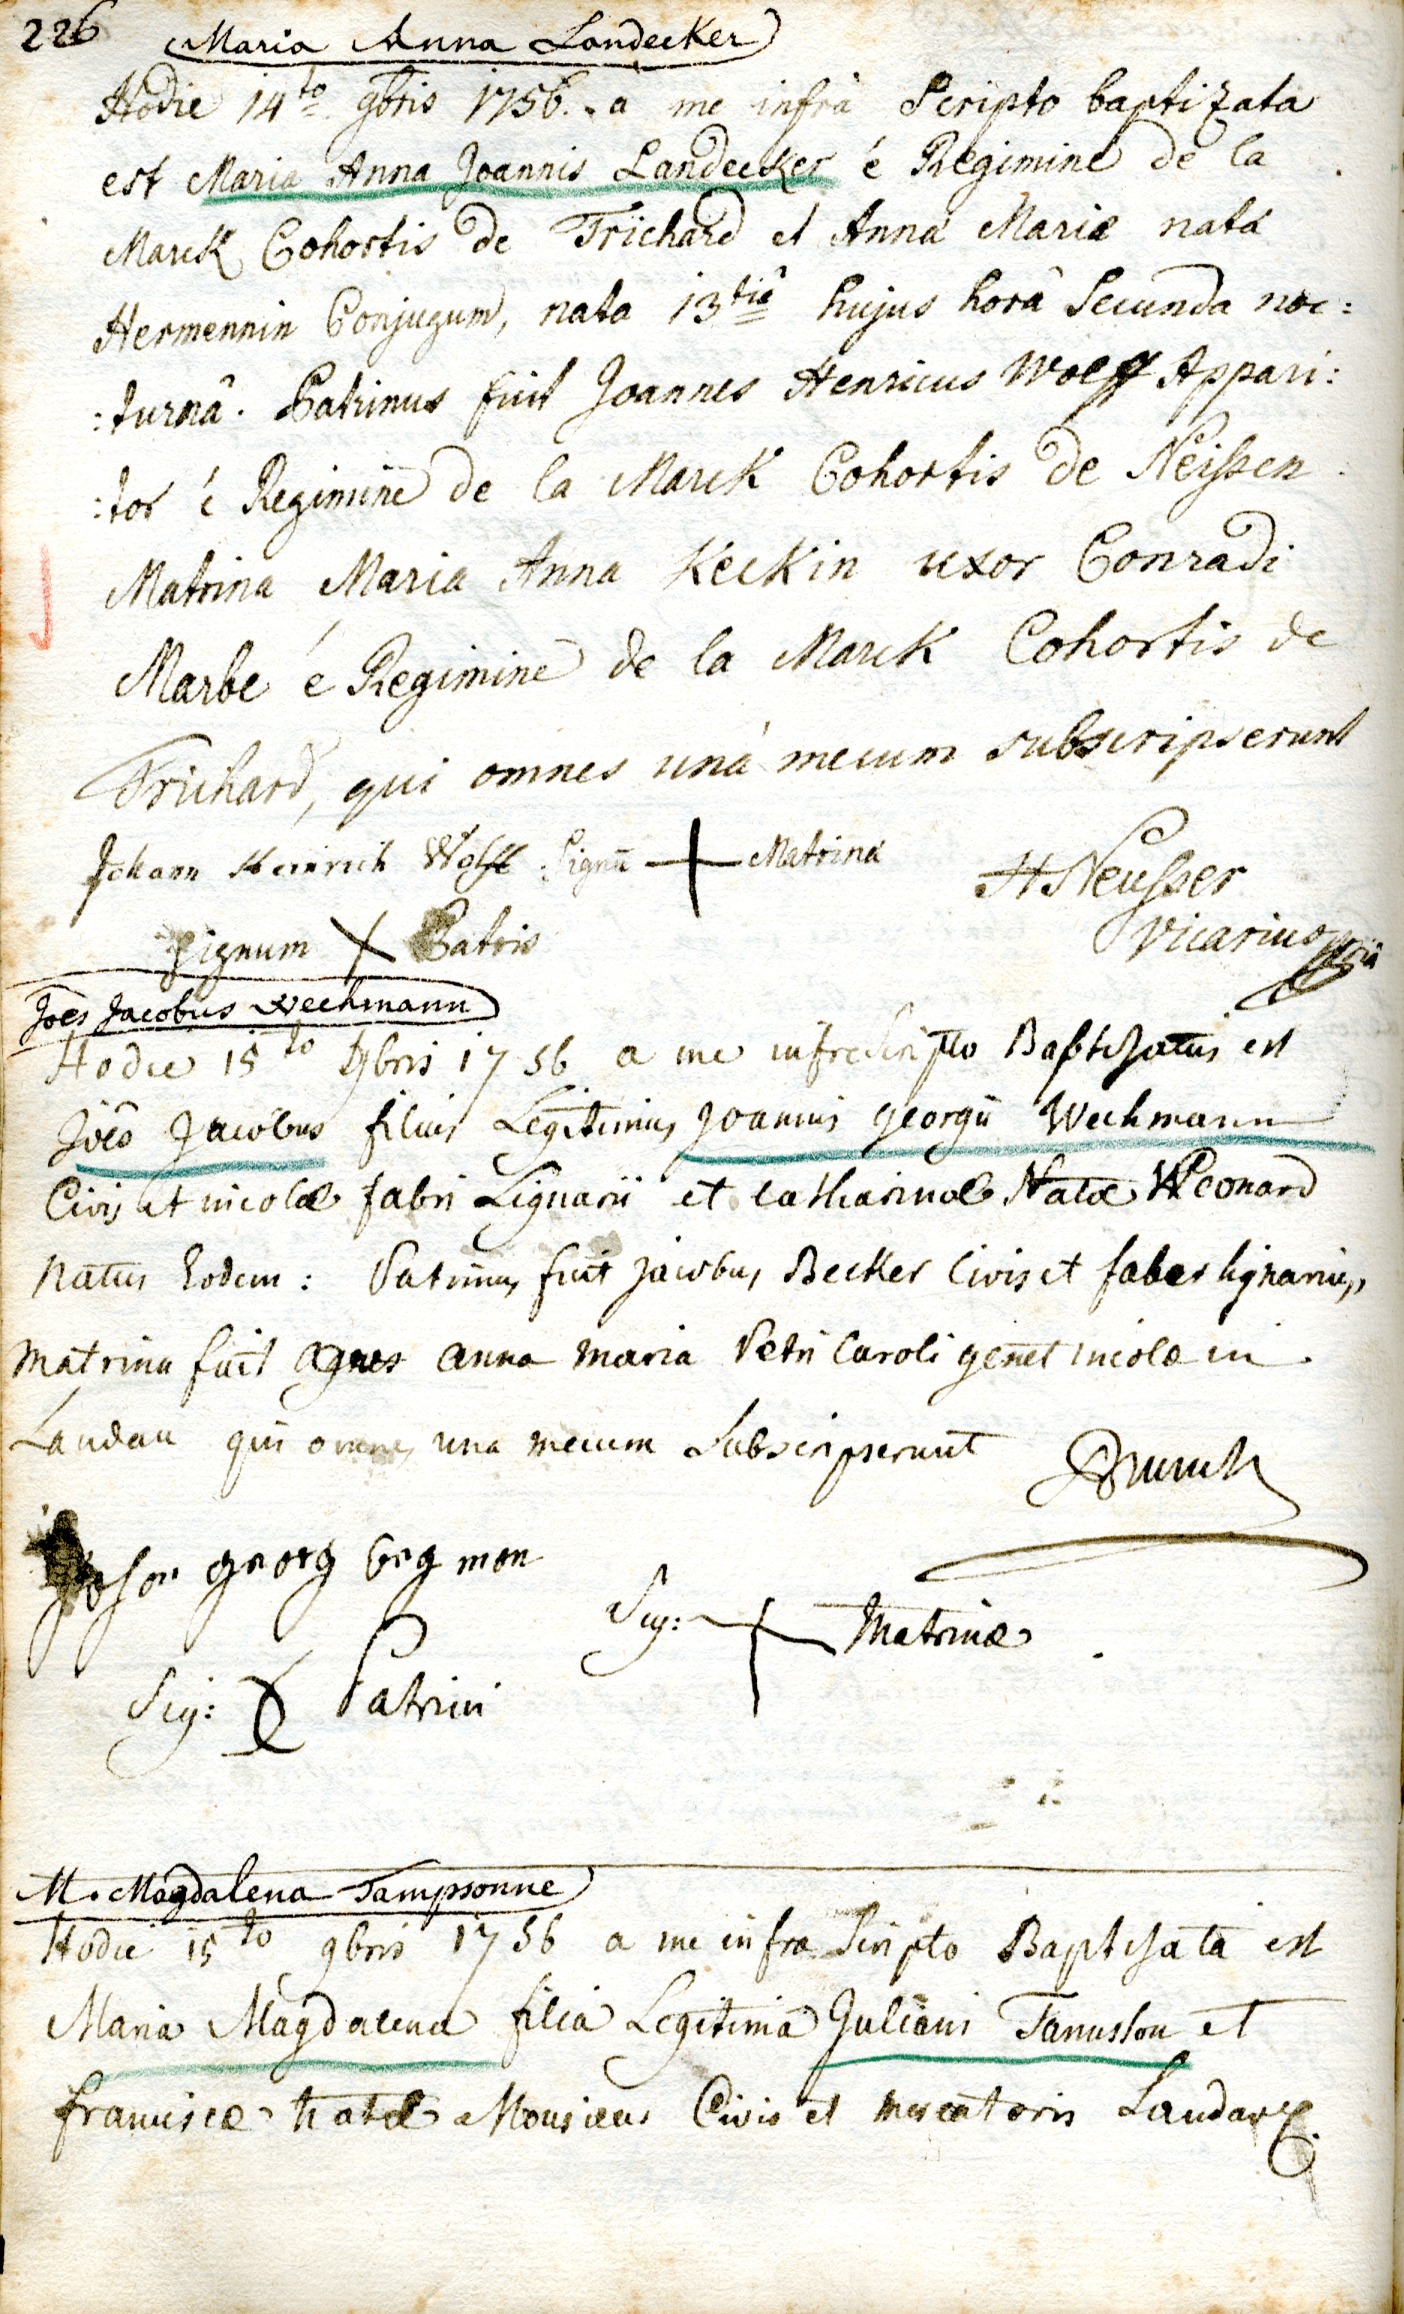 226 Maria Anna Landecker
Hodie 14to 9bris 1756. a me infrà Scripto baptizata
est Maria Anna Joannis Landecker é Regimine de la
Marck Cohortis de Trichard et Anna Mariæ nata
Hermennin Conjugum, nata 13tiâ hujus horâ Secunda noc:
:turnâ. Patrinus fuit Joannes Henricus Wolff Appari:
:tor é Regimine de la Marck Cohortis de Neissen
Matrina Maria Anna Keckin uxor Conradi
Marbe é Regimine de la Marck Cohortis de
Trichard, qui omnes unà mecum subscripserunt
Johann Heinrich Wolff Signū + Matrina
H Neusser
Signum X Patris
Vicarius
Joēs Jacobus Wechmann
Hodie 15to 9bris 1756 a me infrascripto Baptisatus est
Joēs Jacobus filius Legitimus Joannis georgii Wechmann
Civis et incolæ fabri Lignarii et catharinæ Natæ Leonard
Natus Eodem: Patrinus fuit Jacobus Becker Civis et faber lignarius,
Matrina fuit agnes anna maria Petri Caroli genet incolæ in
Landau qui omnes una mecum Subscripserunt
georg beg mon
Sig: + Matrinæ
Sig: X Patrini
M. Magdalena Sampsonne
Hodie 15to 9bris 1756 a me infra Scripto Baptisata est
Maria Magdalena filia Legitima Juliani et
franciscæ natæ Civis et mercatoris Landav.